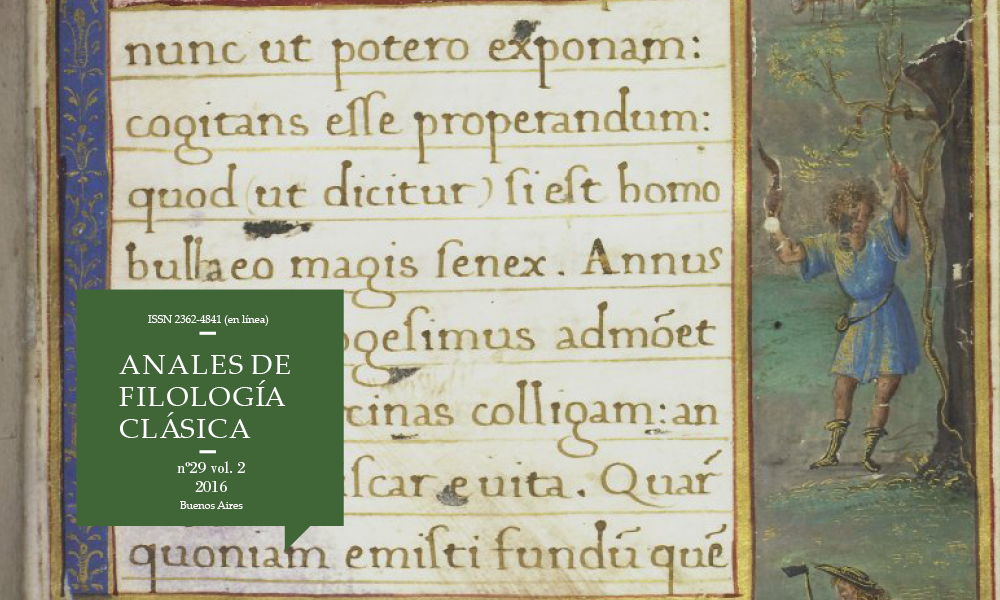 nunc ut potero exponam:
cogitans eſſe properandum:
quod (ut dicitur) ſi eſt homo
bulla eo magis ſenex. Annus
ogeſimus admōet
cinas colligam: an
ſcar e uita. Quar̄
quoniam emiſti fundū quē
ISSN 2362-4841 (en línea)
ANALES DE
FILOLOGÍA
CLÁSICA
nº29 vol. 2
2016
Buenos Aires